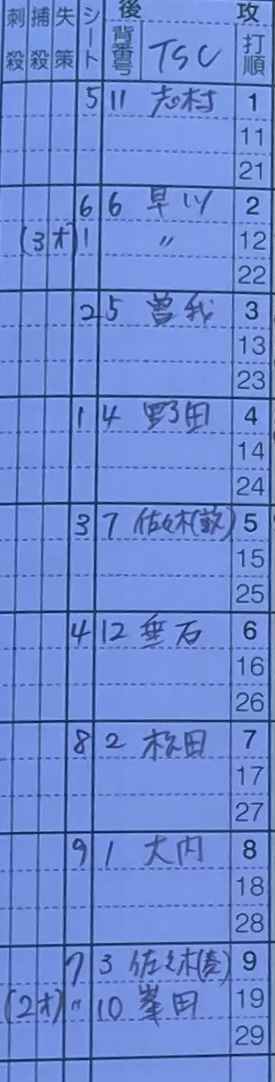 刺殺 捕殺 失策 シート 後 攻
背番号 TSC 打順
5 11 志村 1
11
21
6 6 早川 2
(3オ) 1 〃 12
22
2 5 曽我 3
13
23
1 4 野田 4
14
24
3 7 佐々木(敦) 5
15
25
4 12 垂石 6
16
26
8 2 松田 7
17
27
9 1 大内 8
18
28
7 3 佐々木 9
(2オ) 〃 10 峯田 19
29